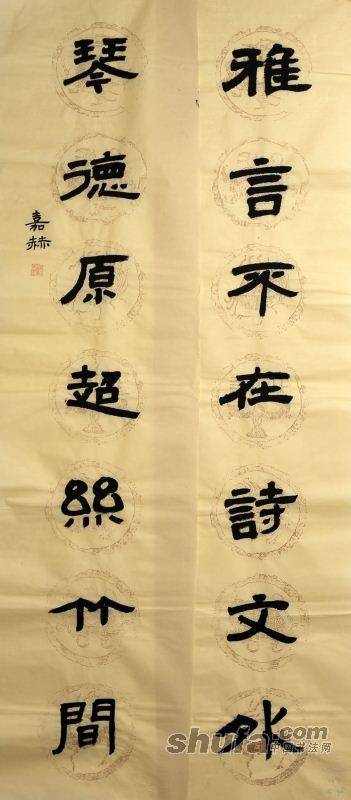 雅言不在詩文外
琴德原超絲竹間
嘉赫
shufa.com
中国书法网